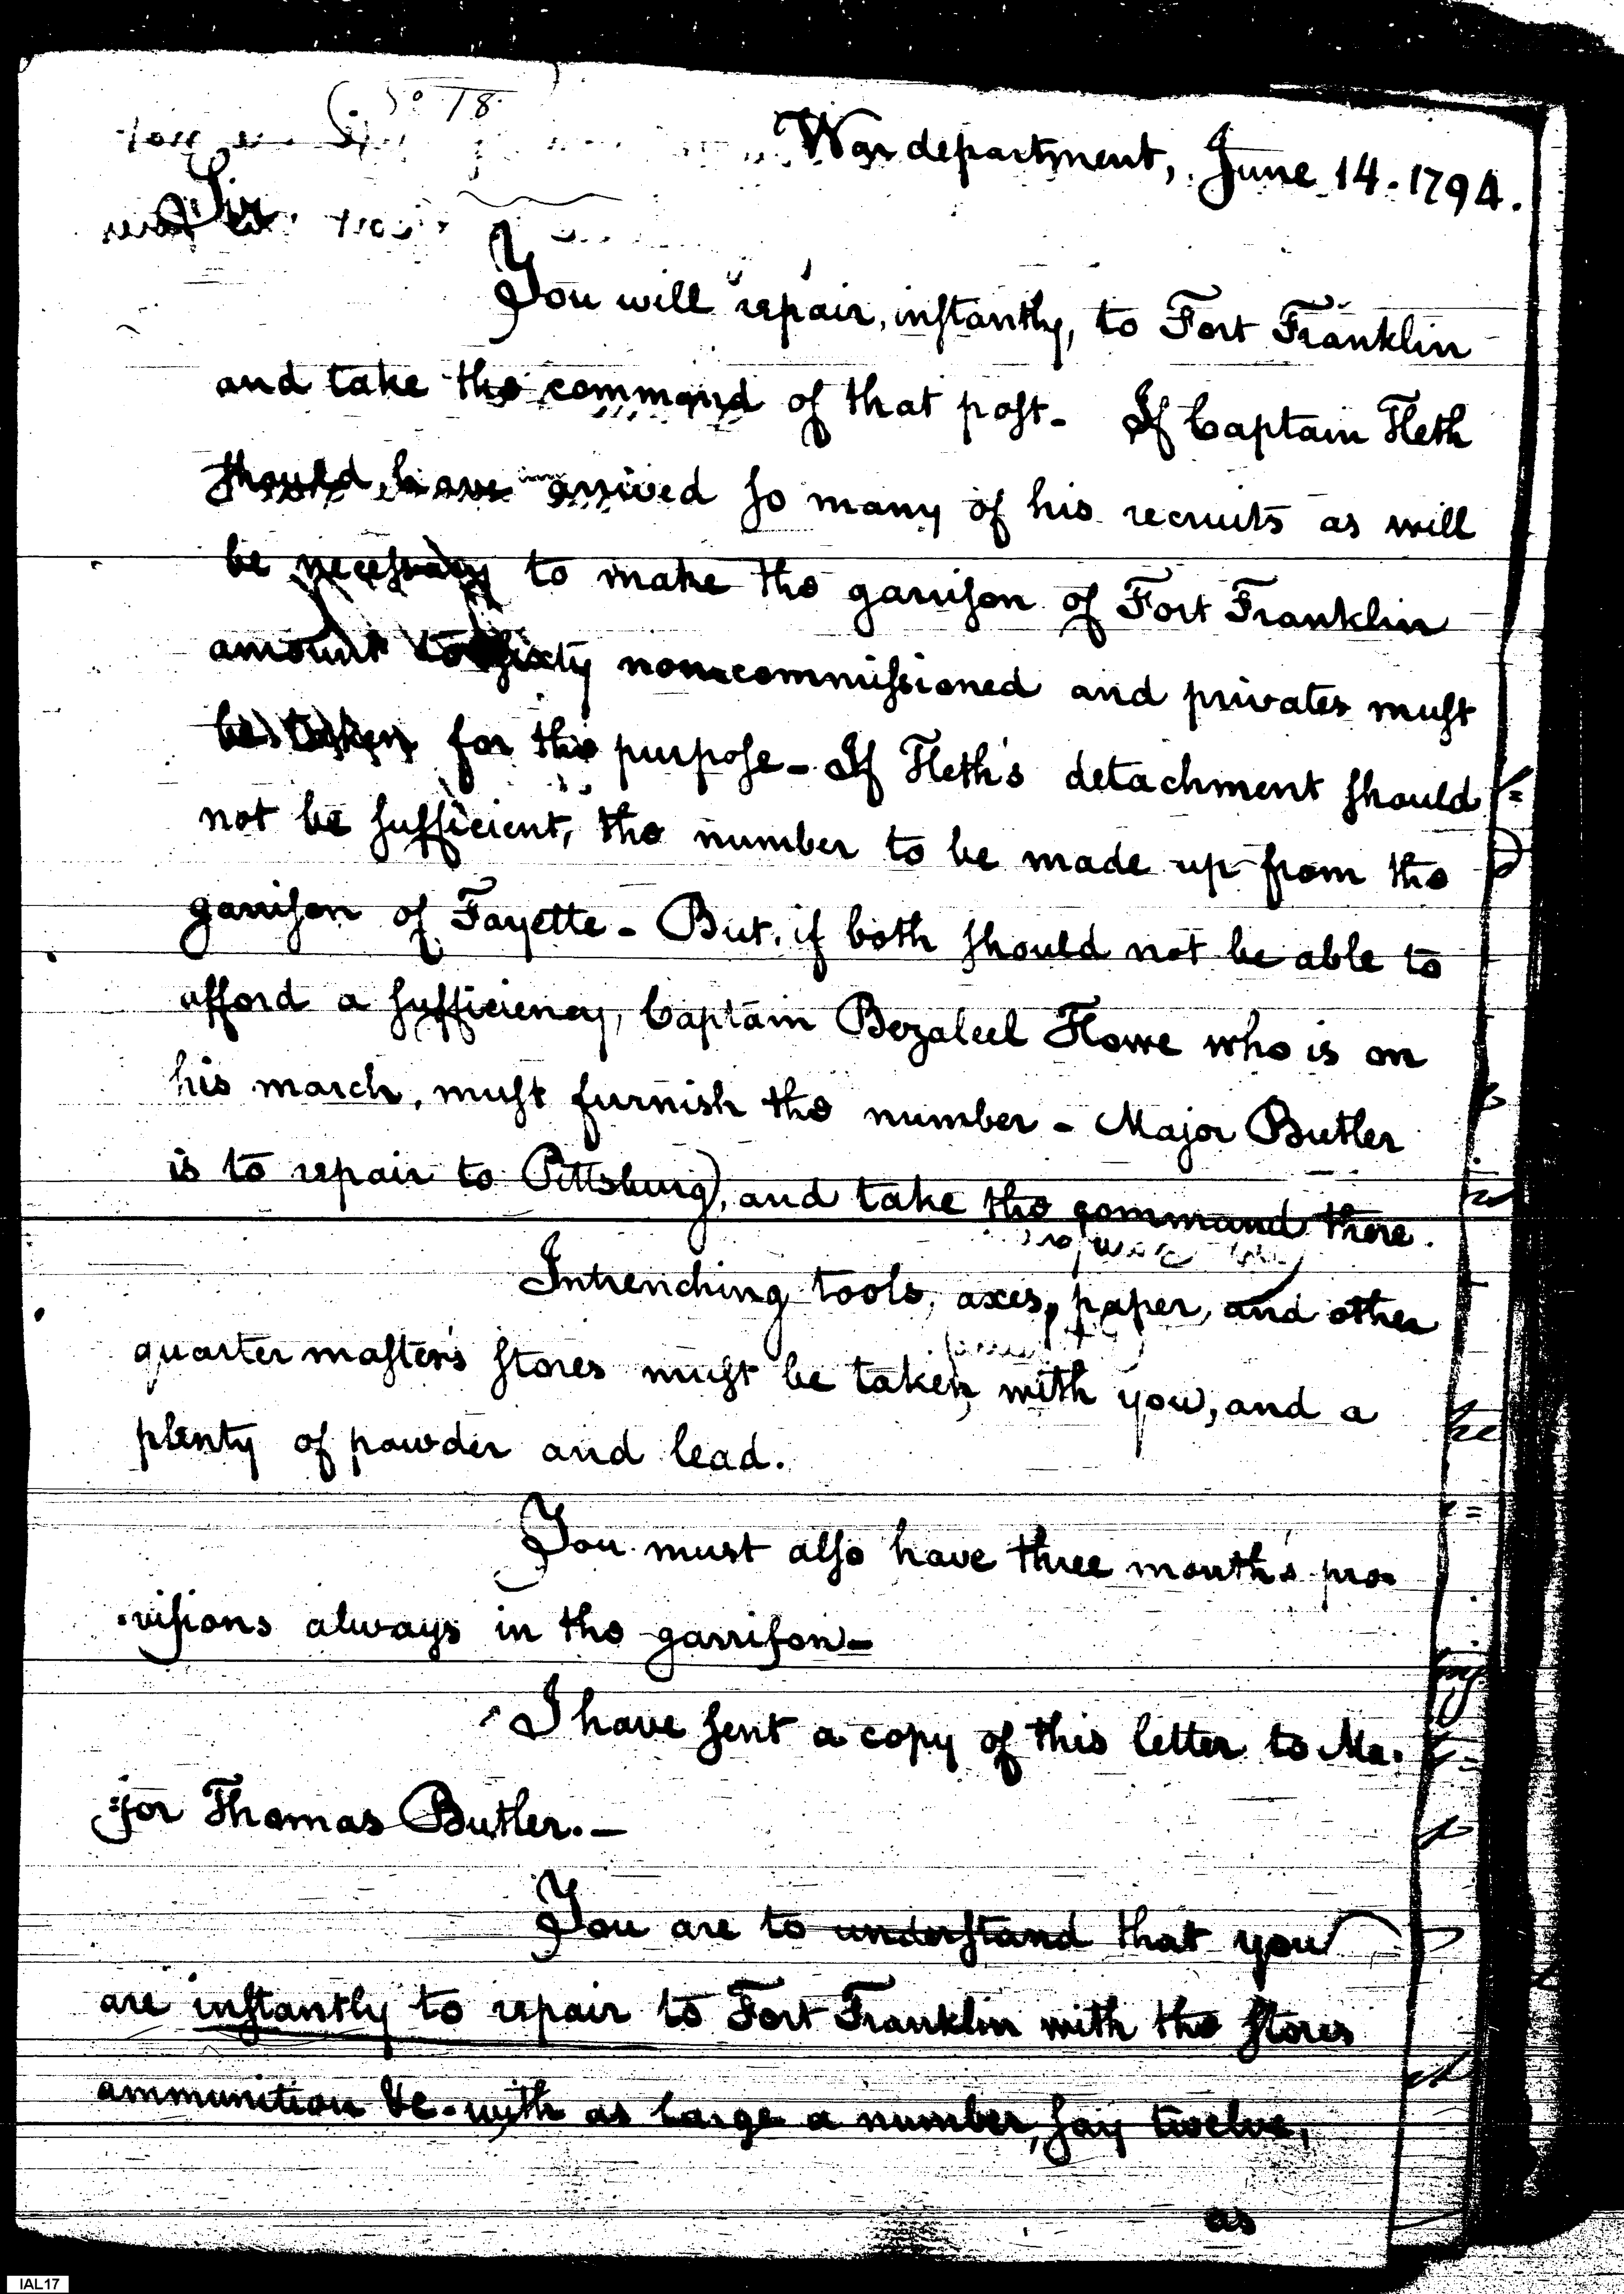 No 18
War department, June 14. 1794.
Sir
You will repair, instantly, to Fort Franklin
and take the command of that post- If Captain Heth
should have arrived so many of his recruits as will
be necessary to make the garrison of Fort Franklin
amount to sixty noncommissioned and privates must
be taken for this purpose- If Heth's detachment should
not be sufficient, the number to be made up from the
garrison of Fayette- But, if both should not be able to
afford a sufficiency, Captain Bezaleel Howe who is on
his march, must furnish the number- Major Butler
is to repair to Pittsburg, and take the command there.
Intrenching tools, axes, paper, and other
quarter master's stores must be taken with you, and a
plenty of powder and lead.
You must also have three month's pro-
-visions always in the garrison-
I have sent a copy of this letter to Ma-
=jor Thomas Butler.-
You are to understand that you
are instantly to repair to Fort Franklin with the stores
ammunition &c. with as large a number, say twelve,
as
IAL17